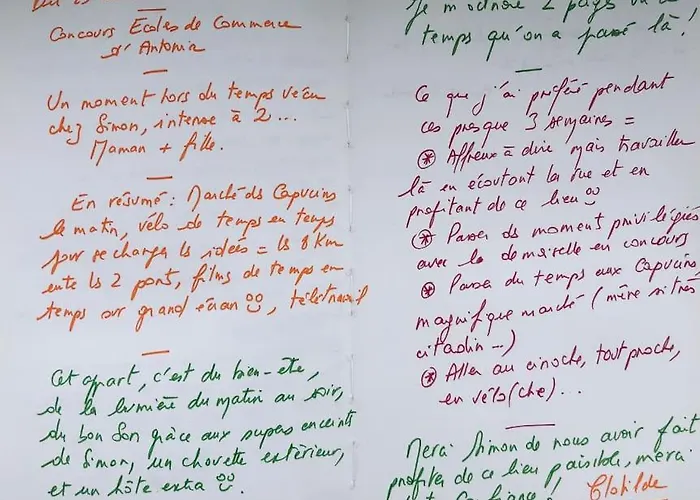 Concours Ecoles de Commerce
d'Antonia
Un moment hors du temps vécu
chez Simon, intense à 2...
Maman + fille.
En résumé : Marché des Capucins
le matin, vélo de temps en temps
pour se changer les idées = les 8 km
entre les 2 ponts, films de temps en
temps sur grand écran, télétravail
Cet appart, c'est du bien-être,
de la lumière du matin au soir,
du bon son grâce aux supers enceintes
de Simon, un chouette extérieur,
et un hôte extra
Je m 2 pages
temps qu'on a passé là.
Ce que j'ai préféré pendant
ces presque 3 semaines =
* Affreux à dire mais travailler
là en écoutant la rue et en
profitant de ce lieu
* Passer des moment privilégiés
avec la demoiselle en concours
* Passer du temps aux Capucins
magnifique marché (mère si très
citadin --)
* Aller au cinoche, tout proche,
en vélo(che)...
Merci Simon de nous avoir fait
profiter de ce lieu paisible, merci
Clotilde